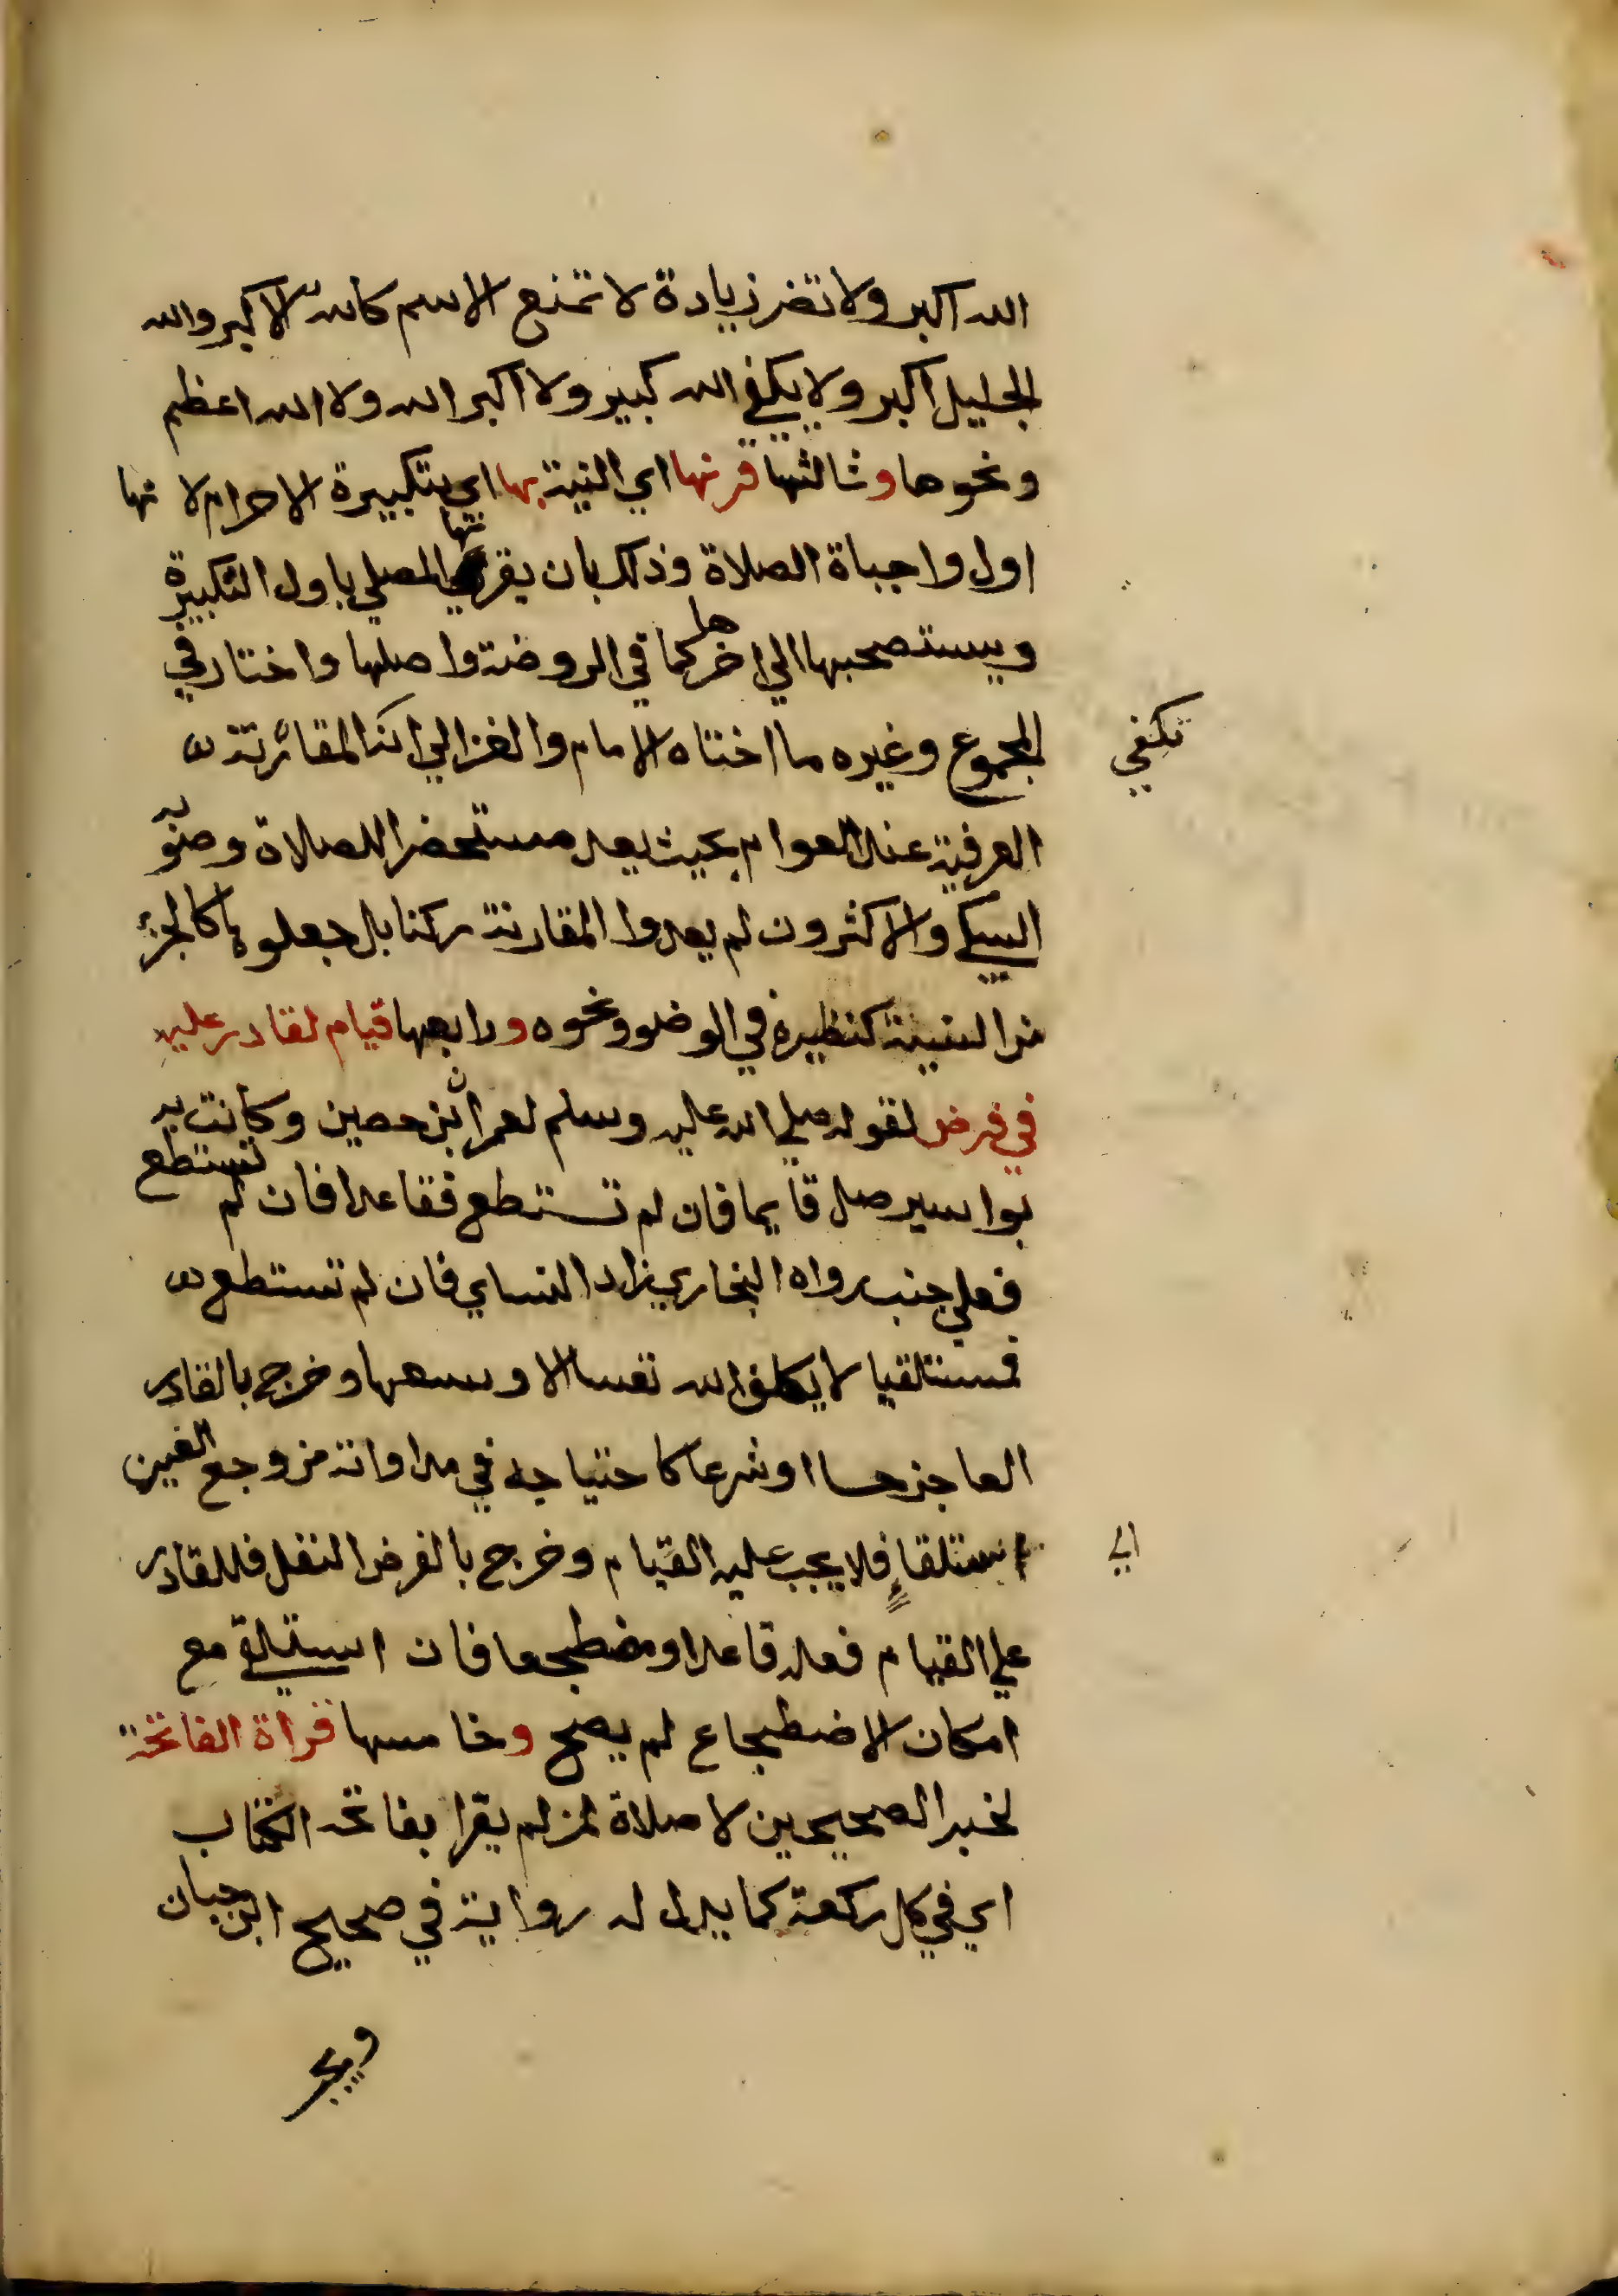 الله اكبر ولا تضر زيادة لا تمنع الاسم كالله الاكبر والله
الجليل اكبر ولا يكفي الله كبير ولا اكبر الله ولا الله اعظم
ونحوها وثالثها قرنها اي النية بها اي بتكبيرة الاحرام لانها
اول واجباة الصلاة وذلك بان يقرنها المصلي باول التكبيرة
ويستصحبها الي اخرها كما في الروضة واصلها واختار في
المجموع وغيره ما اختاه الامام والغزالي انه المقارنة
تكفي
العرفية عند العوام بحيث يعد مستحضرا للصلاة وصوبه
السبكي والاكثرون لم يعدوا المقارنة ركنا بل جعلوها كالجزء
من النية كنظيره في الوضو ونحوه ورابعها قيام لقادر عليه
في فرض لقوله صلي الله عليه وسلم لعمران بن حصين وكانت به
بواسير صل قايما فان لم تستطع فقاعدا فان لم تستطع
فعلي جنب رواه البخاري زاد النساي فان لم تستطع
فمستلقيا لا يكلف الله نفسا الا وسعها وخرج بالقادر
العاجز حسا او شرعا كاحتياجه في مداواته من وجع العين
الي
استلقاءٍ فلا يجب عليه القيام وخرج بالفرض النفل فللقادر
علي القيام فعله قاعدا ومضطجعا فان استلقي مع
امكان الاضطجاع لم يصح وخامسها قراة الفاتحة
لخبر الصحيحين لا صلاة لمن لم يقرا بفاتحة الكتاب
اي في كل ركعة كما يدل له رواية في صحيح ابن حبان